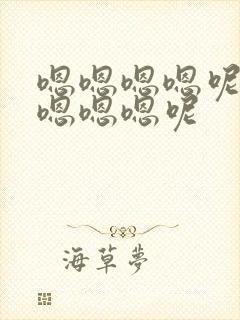 嗯嗯嗯嗯呢
嗯嗯嗯呢
海草夢